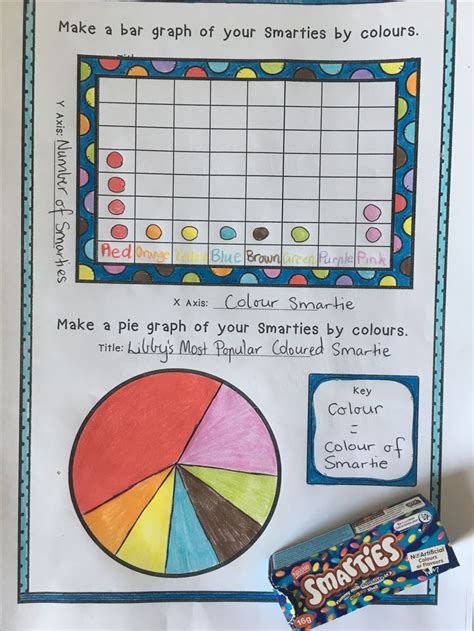 Make a bar graph of your Smarties by colours.
Y Axis: Number of Smarties
Red Orange Yellow Blue Brown Green Purple Pink
X Axis: Colour Smartie
Make a pie graph of your Smarties by colours.
Title: Libby's Most Popular Coloured Smartie
Key
Colour
=
Colour of
Smartie
SMARTIES
No Artificial
Colours
or Flavours
16g